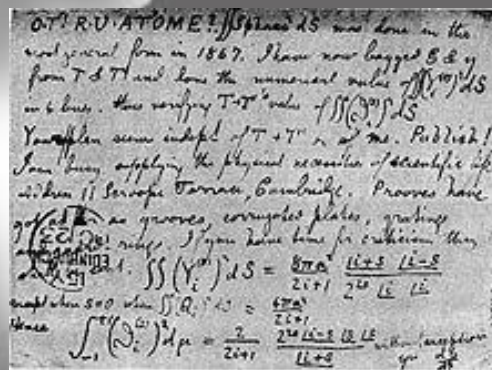 O T! R. U. AT 'OME? ∬ Spharc² dS was done in the
most general form in 1867. I have now bagged ξ & η
from T & T' and done the numerical value of ∬(Yᵢ⁽ˢ⁾)² dS
in 6 lines. Thus verifying T+T''s value of ∬(ϑᵢ⁽ˢ⁾)² dS
Your plan seems indept of T + T' or of me. Publish!
I am busy supplying the physical necessities of scientific life
address 11 Scroope Terrace, Cambridge. Prooves have
as grooves, corrugated plates, gratings
rings. If you have time for criticism then
∬(Yᵢ⁽ˢ⁾)² dS = 8πa² / 2i+1 · |i+s |i−s / 2²ˢ |i |i
except when s=0 when ∬(Qᵢ)² dS = 4πa² / 2i+1
Hence
∫₋₁⁺¹ (ϑᵢ⁽ˢ⁾)² dμ = 2 / 2i+1 · 2²ˢ |i−s |s |s / |i+s without exception